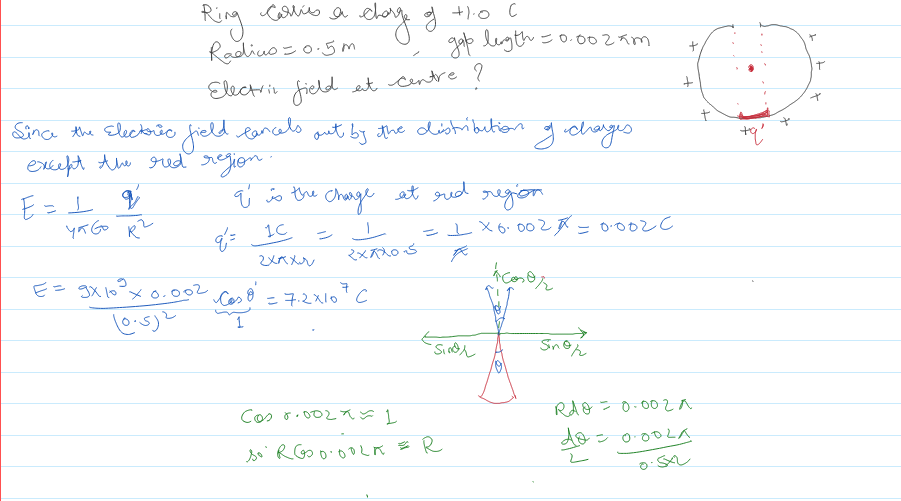 Ring carries a charge of +1.0 C
Radius = 0.5m , gap length = 0.002πm
Electric field at centre ?
+ + + + + + + +
q'
Since the Electric field cancels out by the distribution of charges
except the red region.
E = 1/4πϵ0 q'/R² q' is the charge at red region
q' = 1C/2×π×r = 1/2×π×0.5 = 1/π × 0.002π = 0.002C
E = 9×10⁹ × 0.002/(0.5)² Cosθ' = 7.2×10⁷ C
1
Cosθ/2
θ
Sinθ/2 Sinθ/2
θ
Cos 0.002π ≈ 1
so RCos0.002π ≡ R
Rdθ = 0.002π
dθ/2 = 0.002π/0.5×2